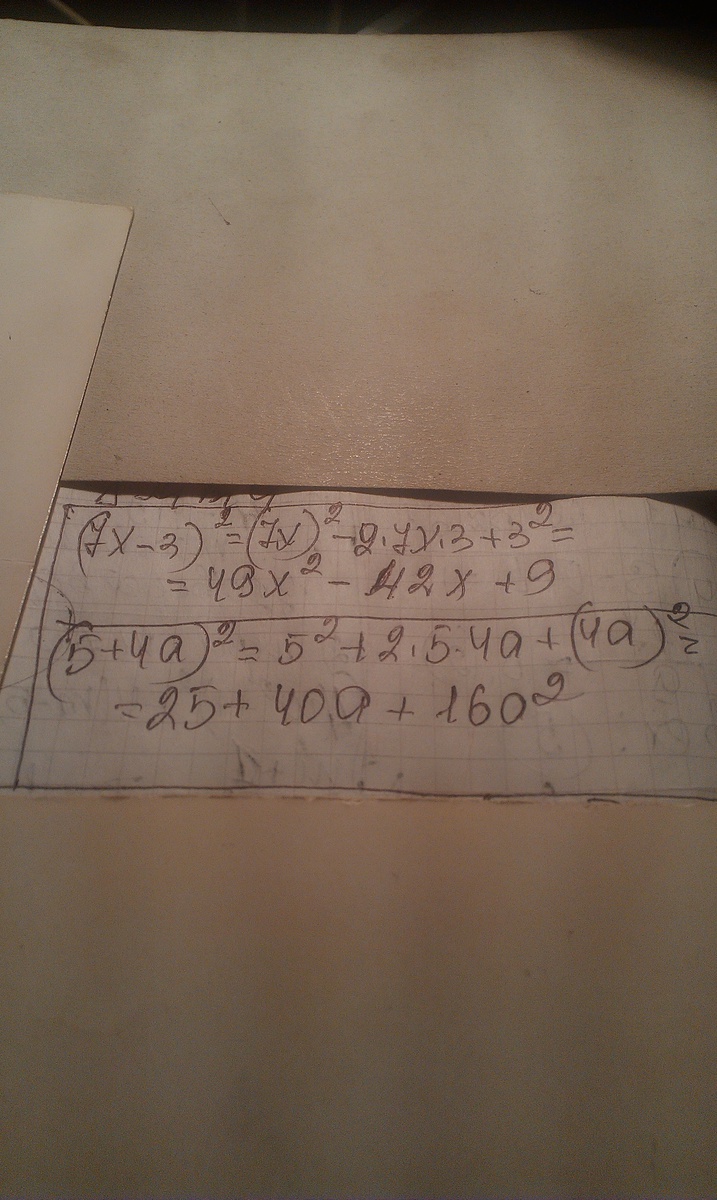 (7x-3)² = (7x)² - 2·7x·3 + 3² =
= 49x² - 42x + 9
(5+4a)² = 5² + 2·5·4a + (4a)² =
= 25 + 40a + 16a²